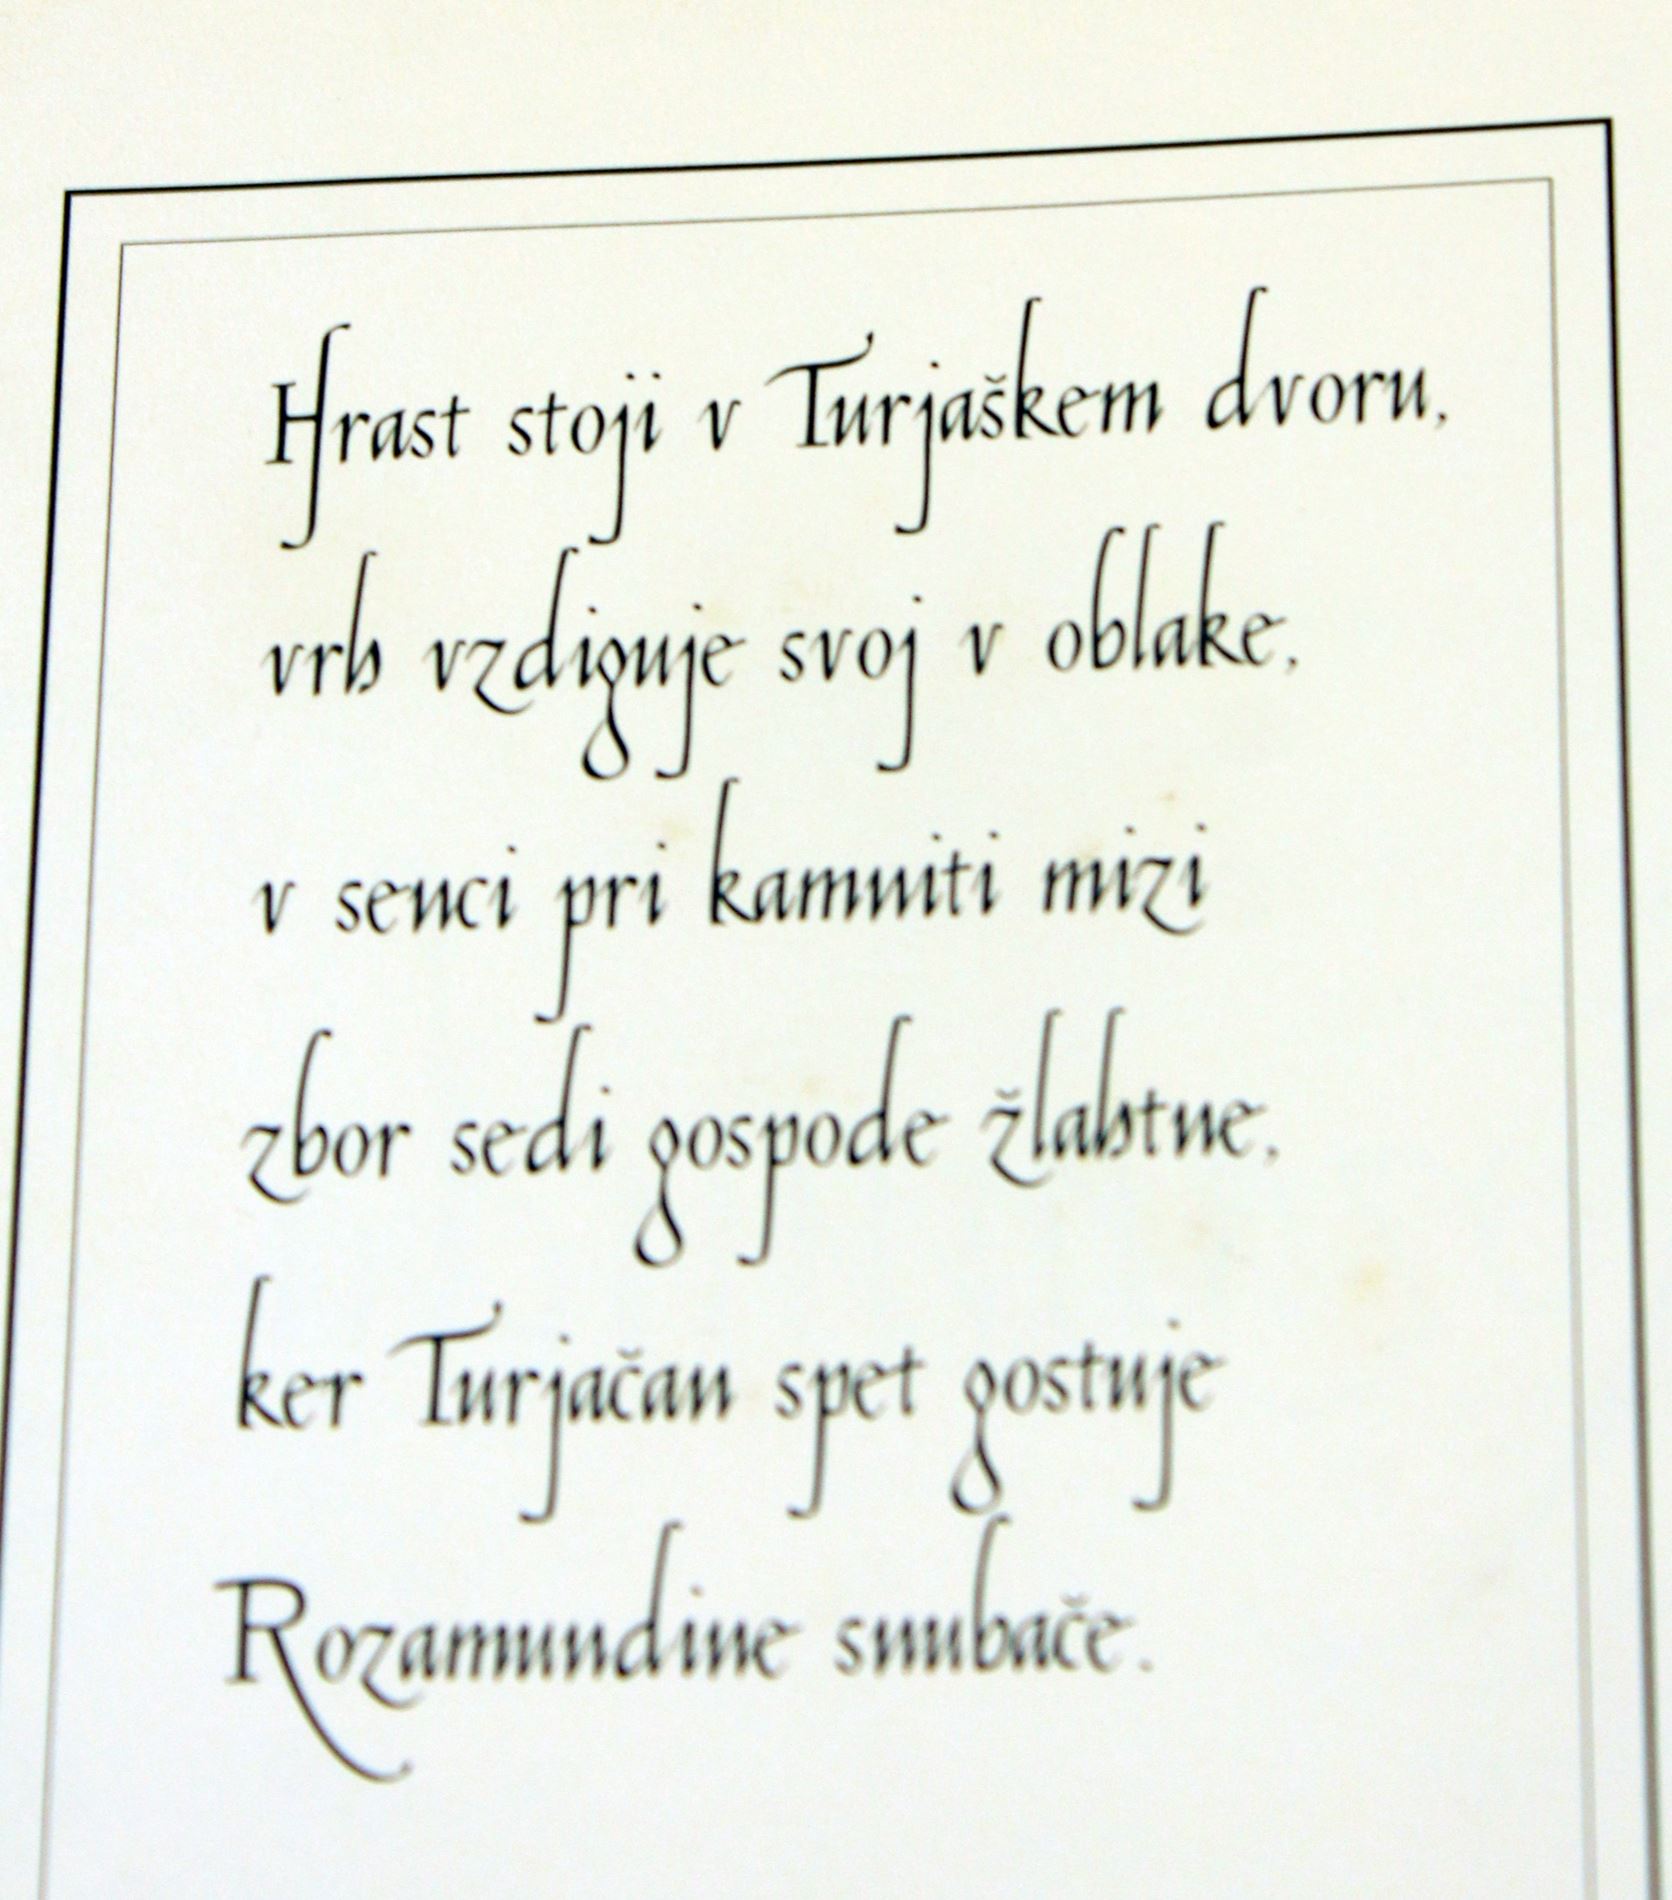 Hrast stoji v Turjaškem dvoru,
vrh vzdiguje svoj v oblake,
v senci pri kamniti mizi
zbor sedi gospode žlahtne,
ker Turjačan spet gostuje
Rozamundine snubače.